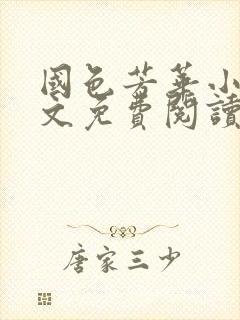 國色芳華小
文免費閱讀
唐家三少